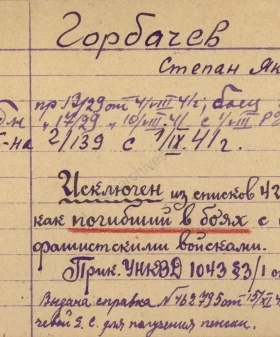 Горбачев
Степан Як
пр 13/29 от 4/VIII 41г, боец
б-н " 17/39 " 10/VIII-41 с 1/VIII
б-на 2/139 с 1/IX.41г.
Исключен из списков 42
как погибший в боях с
фашистскими войсками.
Прик. УНКВД 1043 §3/1 о
Выдана справка № 462795 от 15/VII
чевой Я. С. для получения пенсии.